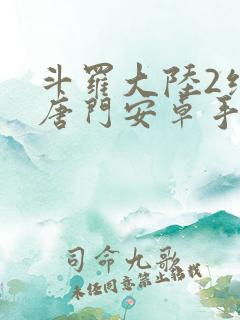 斗羅大陸2
唐門安卓手
司命九歌
未经同意禁止转载